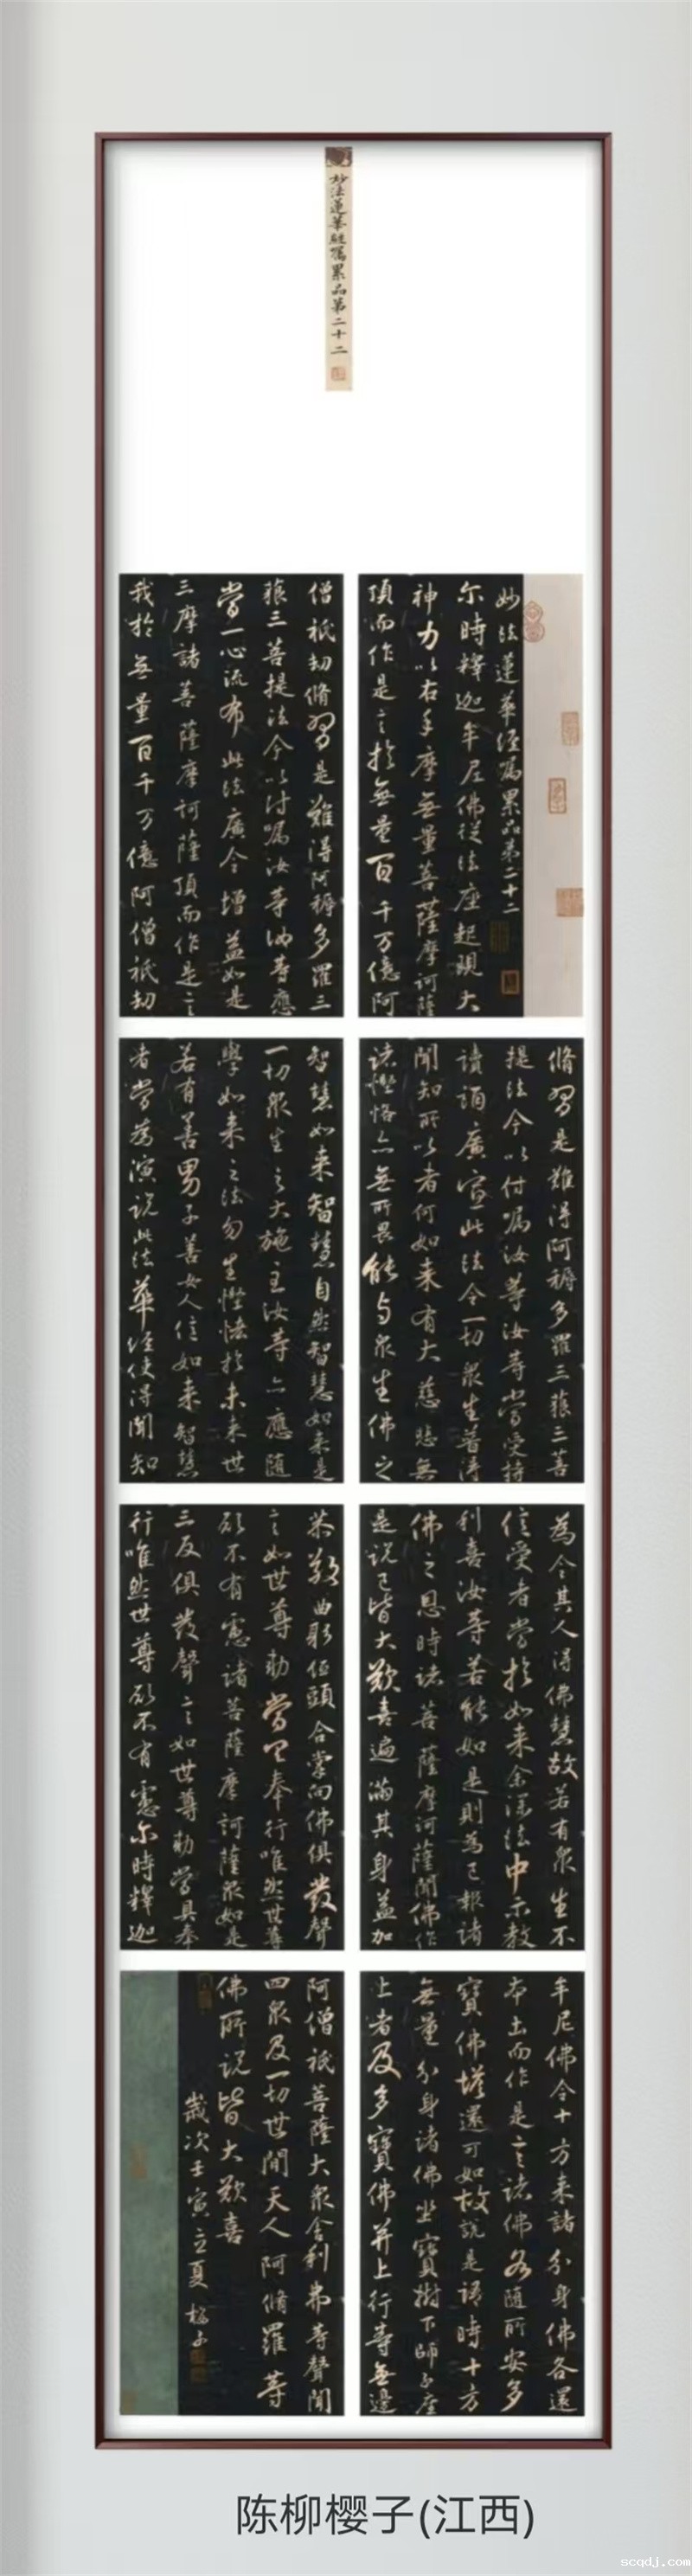 妙法蓮華經囑累品第二十二
妙法蓮華經囑累品第二十二
尓時釋迦牟尼佛從法座起現大
神力以右手摩無量菩薩摩訶薩
頂而作是言我於無量百千万億阿
僧祇劫脩習是難得阿耨多羅三
藐三菩提法今以付囑汝等汝等應
當一心流布此法廣令增益如是
三摩諸菩薩摩訶薩頂而作是言
我於無量百千万億阿僧祇劫
脩習是難得阿耨多羅三藐三菩
提法今以付囑汝等汝等當受持
讀誦廣宣此法令一切眾生普得
聞知所以者何如來有大慈悲無
諸慳悋亦無所畏能与眾生佛之
智慧如来智慧自然智慧如来是
一切眾生之大施主汝等亦應随
學如来之法勿生慳悋於未来世
若有善男子善女人信如来智慧
者當為演説此法華經使得聞知
為令其人得佛慧故若有眾生不
信受者當於如来余深法中示教
利喜汝等若能如是則為已報諸
佛之恩時諸菩薩摩訶薩聞佛作
是説已皆大歡喜遍滿其身益加
恭敬曲躬低頭合掌向佛俱發聲
言如世尊勅當具奉行唯然世尊
願不有慮諸菩薩摩訶薩眾如是
三反俱發聲言如世尊勅當具奉
行唯然世尊願不有慮尓時釋迦
牟尼佛令十方来諸分身佛各還
本土而作是言諸佛各随所安多
寶佛塔還可如故説是語時十方
無量分身諸佛坐寶樹下師子座
上者及多寶佛并上行等無邊
阿僧祇菩薩大眾舍利弗等聲聞
四眾及一切世間天人阿脩羅等
佛所説皆大歡喜
歲次壬寅立夏 櫻子
陈柳樱子(江西)
scqdj.com